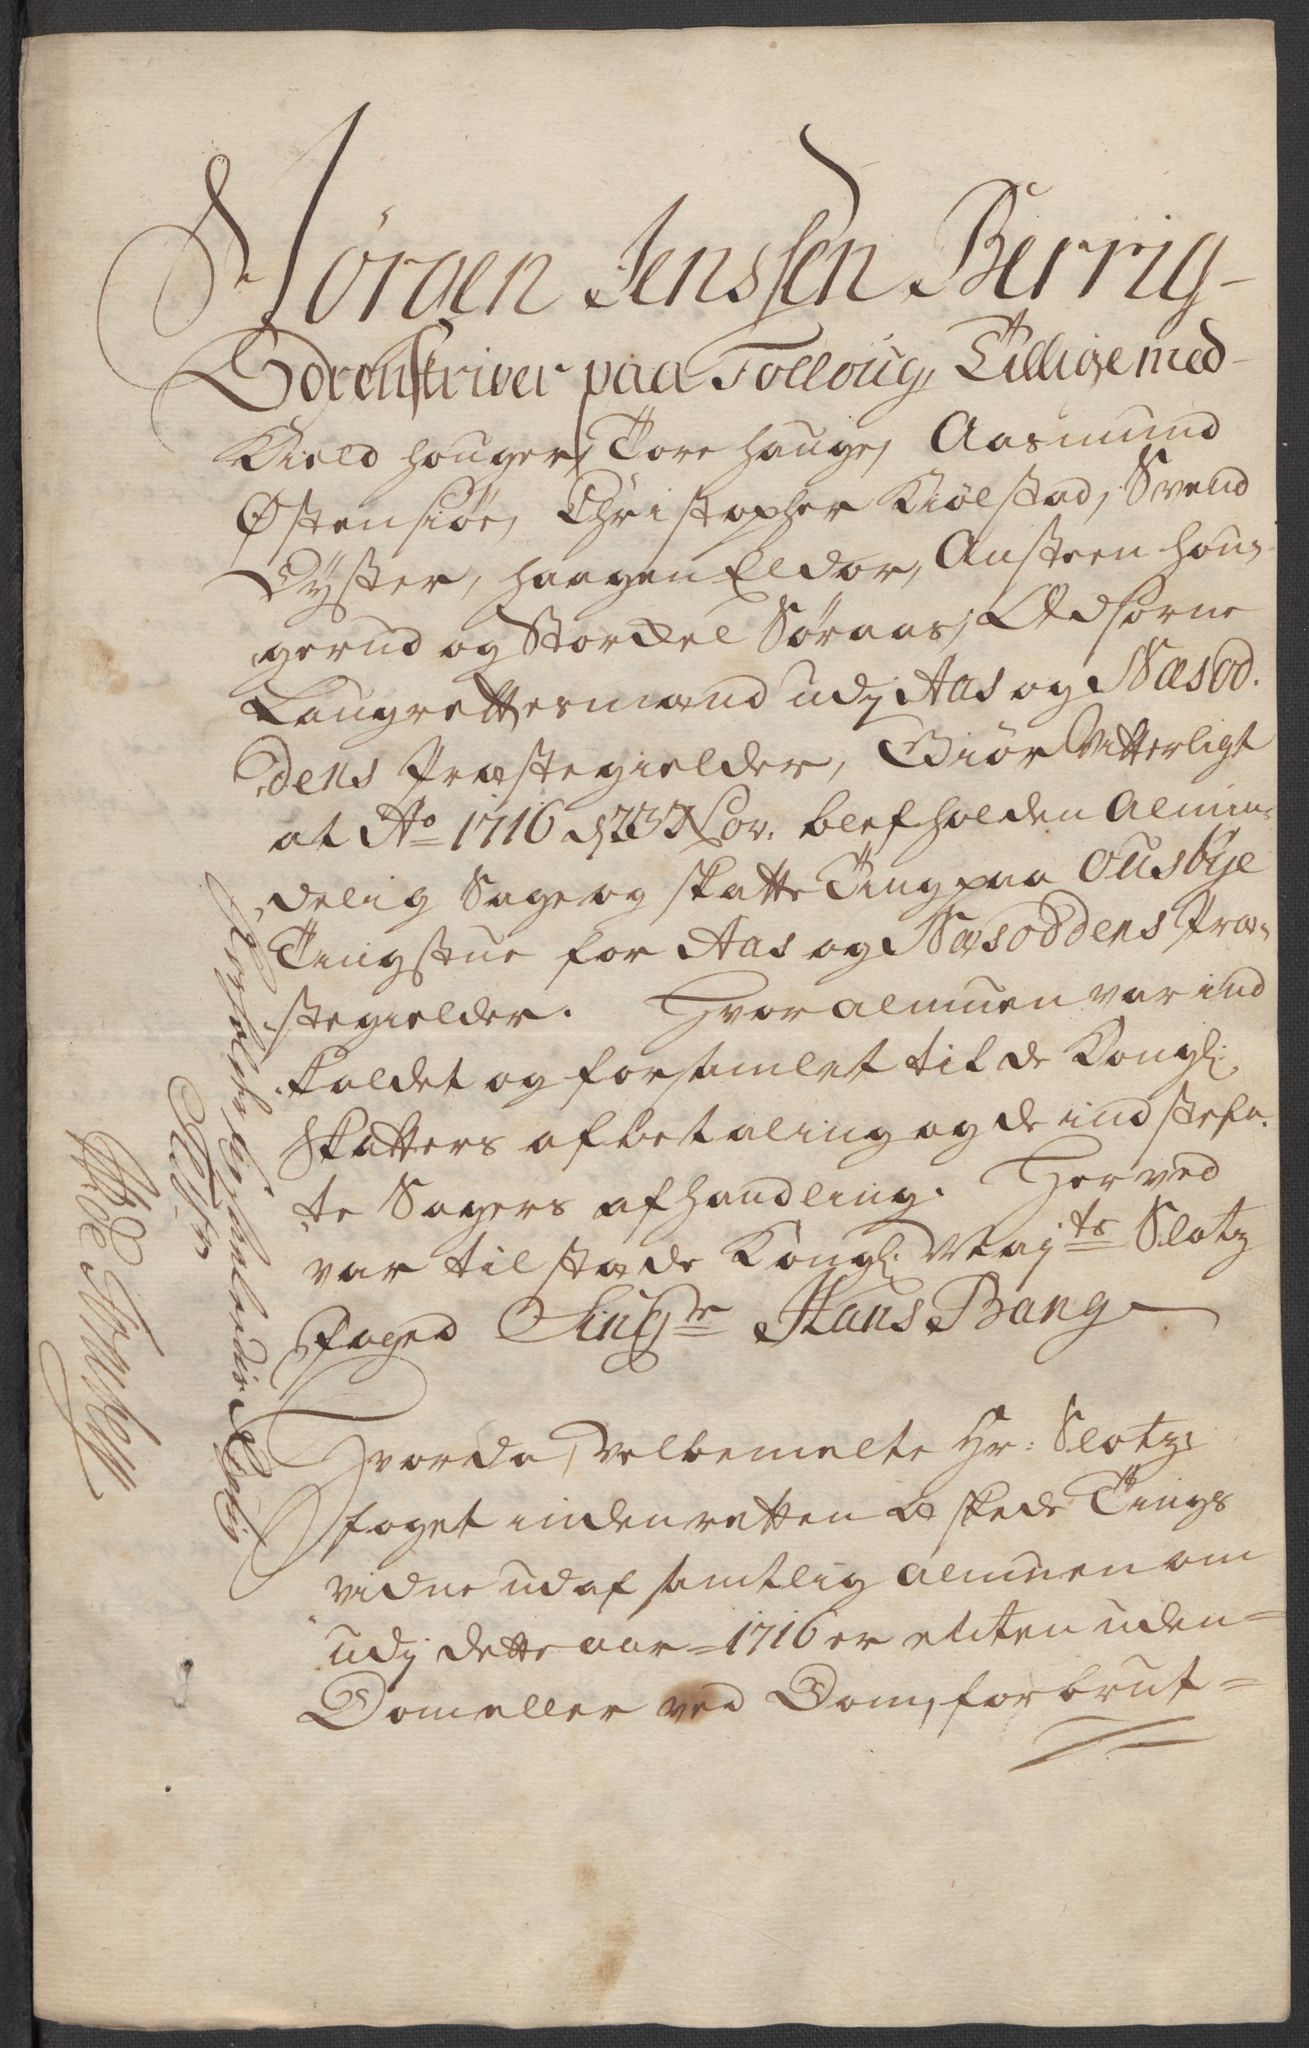 Jørgen Jenssen Berrig
Sorenskriver paa Folloug, Tillige med
Kield Houger, Tore Hauge, Aasmund
Østensiøe, Christopher Kiølstad, Svend
Dyster, Haagen Eldor, Austeen Hou-
gerud og Stordel Søraas, Edsorne
Laugrettesmænd udj Aas og Næsod-
dens Præstegielder, Giør Vitterligt
at Ao 1716 d 23 Nov. blef holden Almin-
delig Sage og skatte Ting paa Ousbye
Tingstue for Aas og Næsoddens Præ-
stegielder. Hvor almuen var ind
kaldet og forsamlet til de Kongl:
Skatters afbetaling og de indstefn-
te Sagers afhandling. Herved
var tilstæde Kongl: Maj:ts Slotz
foged Sing:r Hans Bang
Hvorda, velbemelte Hr: Slotz
foget inden retten æskede Tings
vidne udaf samtlig almuen om
udj dette aar 1716 er enten uden
Dom eller ved Dom, forbrut